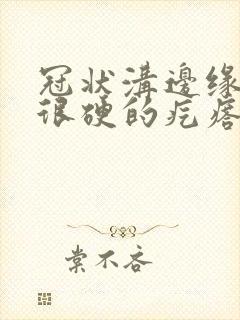 冠状溝邊缘
很硬的疙瘩
棠不吝